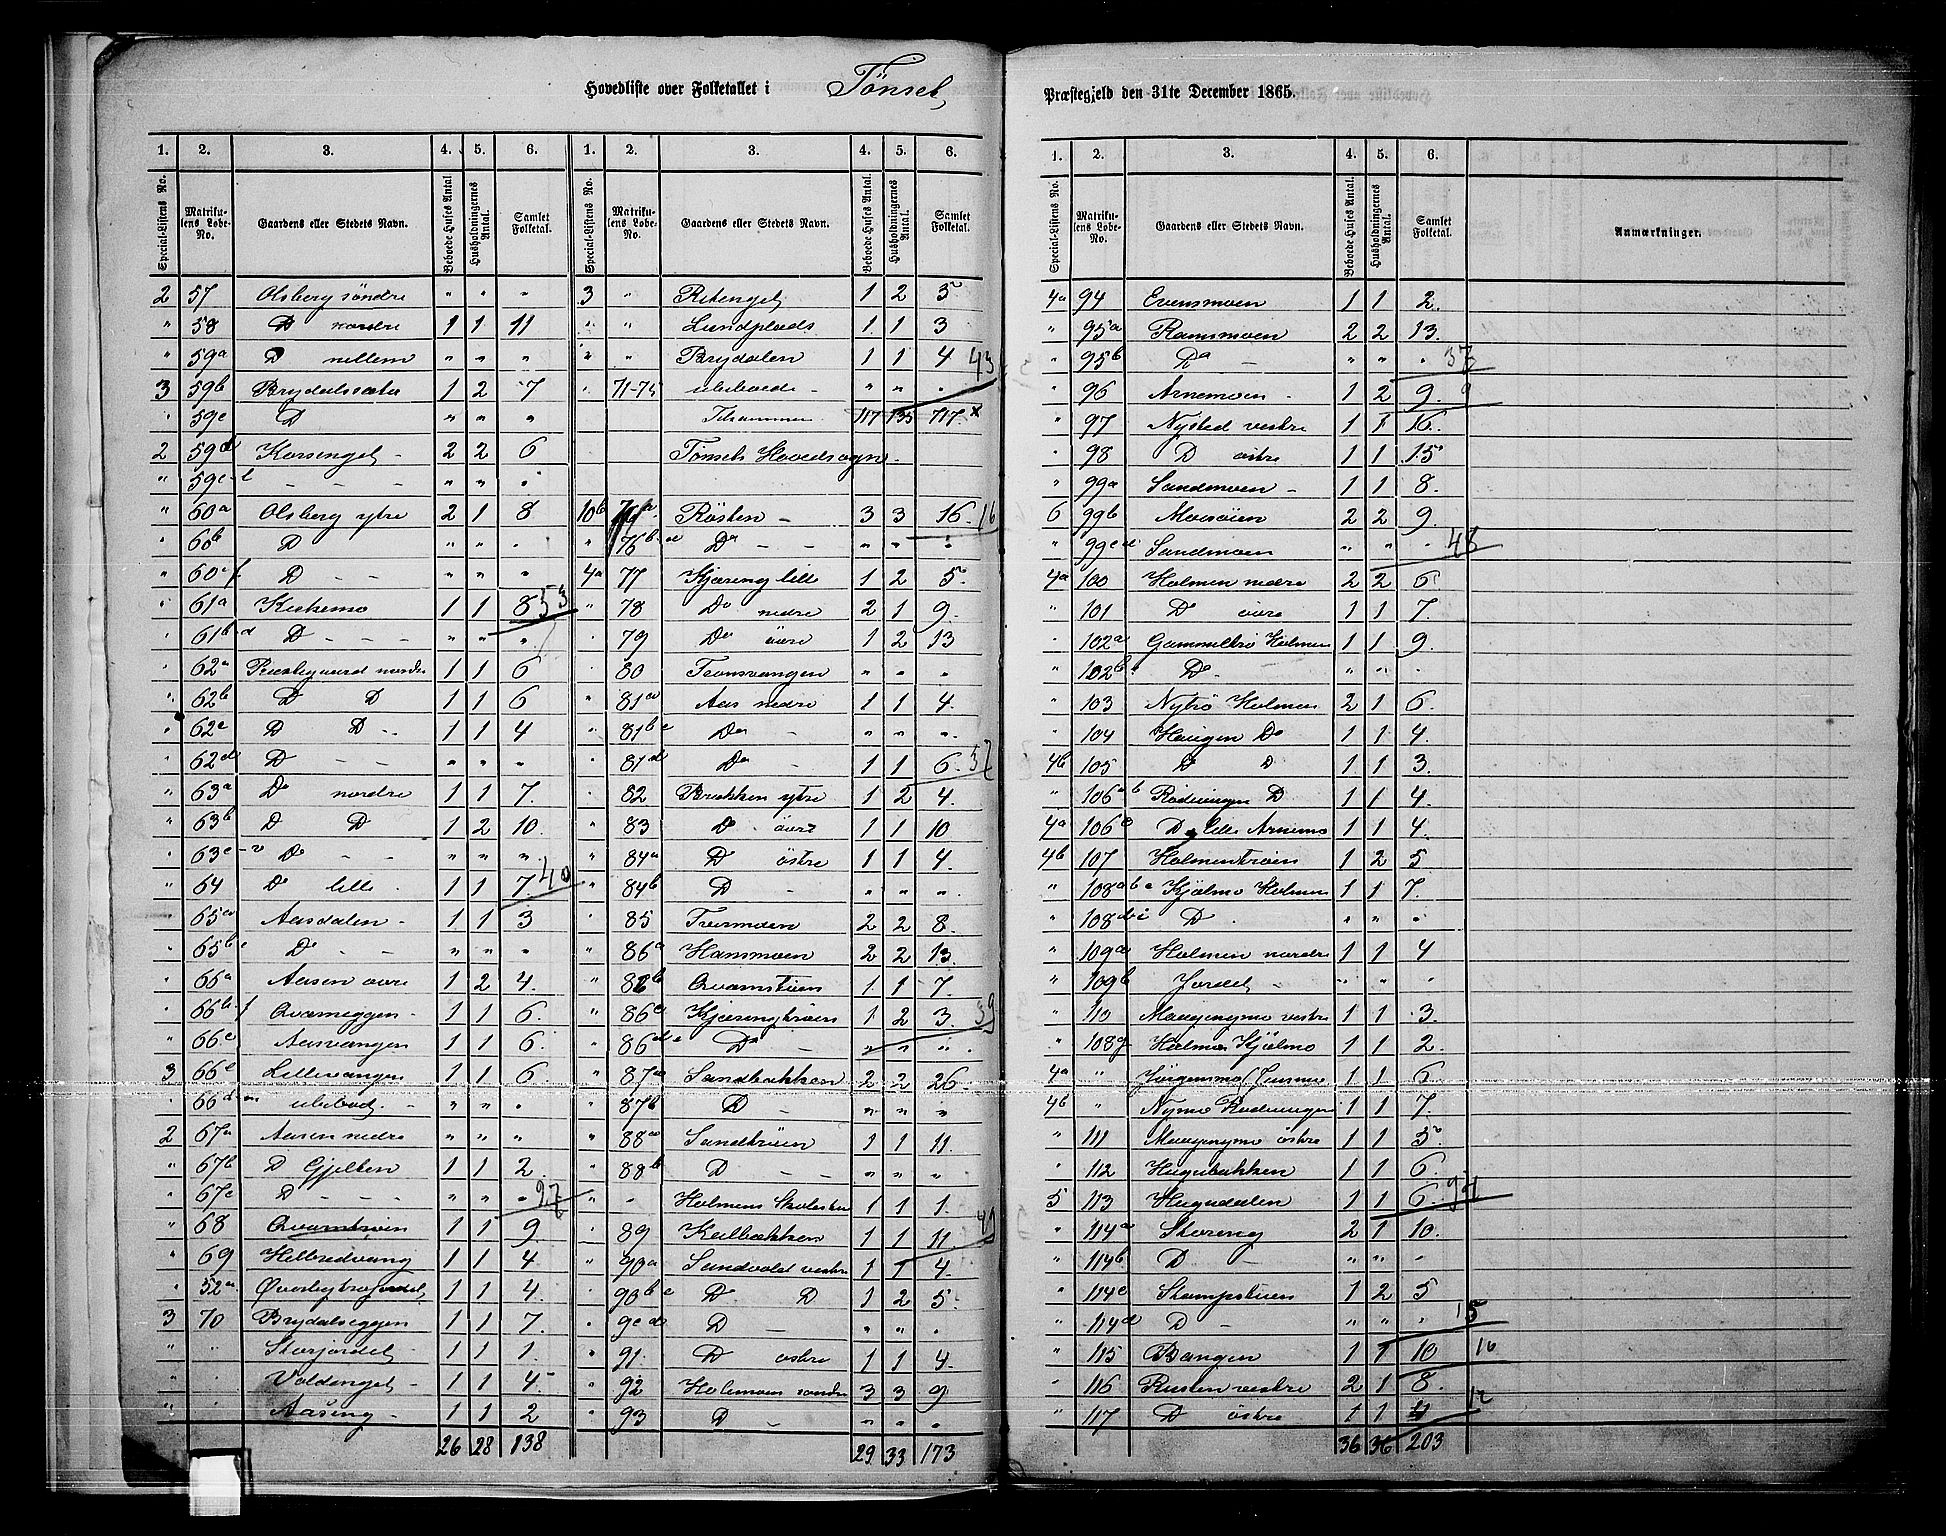 Hovedliste over Folketallet i Tønset, Præstegjeld den 31te December 1865.
1. 2. 3. 4. 5. 6. 1. 2. 3. 4. 5. 6.
Special-Listens No. Matrikulens Løbe-No. Gaardens eller Stedets Navn. Beboede Huses Antal Husholdningernes Antal. Samlet Folketal. Special-Listens No. Matrikulens Løbe-No. Gaardens eller Stedets Navn. Beboede Huses Antal. Husholdningernes Antal. Samlet Folketal.
2 57 Olsberg söndre " " "
" 58 D nordre 1 1 11
" 59a D mellem " " "
3 59b Brydalssæter 1 2 7
" 59c D " " "
2 59d Korsenget - 2 2 6
" 59e-l - - - " " "
" 60a Olsberg ytre 2 1 8
" 60b D " " "
" 60c f D - - " " "
" 61a Kirkemo 1 1 8 53
" 61b-d D - - - " " "
" 62a Præstegaard nordre 1 1 6
" 62b D D 1 1 6
" 62c D D - 1 1 4
" 62d D - - " " "
" 63a Do nordre 1 1 7.
" 63b D D 1 2 10.
" 63c- Do - - " " "
" 64 Do lille - 1 1 7 40
" 65a Aasdalen - 1 1 3
" 65b Do - - " " "
" 66a Aasen övre 1 2 4.
" 66b f Qvameggen - 1 1 6.
" 66c Aasvangen 1 1 6.
3 66e Lillevangen 1 1 6.
" 66d ubebod. - " " "
2 67a Aasen nedre " " "
" 67b D Gjelten 1 1 2
" 67c D - - - " " " 27
" 68 Qvamtrøen 1 1 9
" 69 Helbredvang 1 1 4
" 52a 1 1 4.
3 70 Brydalseggen 1 1 7.
" " Storjordet - 1 1 1.
" " Voldenget - 1 1 4
" " Aaseng - 1 1 2
26 28 138
3 " Ritenget 1 2 5
" " Lundplads 1 1 3
" " Brydalen 1 1 4 43
" 71-75 ubeboede - " " "
Tilsammen 117 135 717. x
Tönsets Hovedsogn -
10b 76a Røsten - 3 3 16. 16
" 76b-d Do - - " " "
4a 77 Kjæreng lille 1 2 5
" 78 Do nedre 2 1 9.
" 79 Do övre 1 2 13
" 80 Tronsvangen " " "
" 81a Aas nedre 1 1 4.
" 81b c Do - " " "
" 81d Do - 1 1 6. 37
" 82 Brækken ytre 1 2 4.
" 83 Do övre 1 1 10
" 84a D östre 1 1 4.
" 84b D - " " "
" 85 Fræmoen 2 2 8.
" 86a Hansmoen 2 2 13
" 86b Qvamstuen 1 1 7.
" 86c Kjærengtrøen 1 2 3. 39
" 86d e Do - " " "
" 87a Sandbakken 2 2 26
" 87b D - " " "
" 88a Sandtrøen 1 1 11.
" 88b D - - " " "
" - Holmens Skolestue 1 1 1.
" 89 Kulbækken 1 1 11. 49
" 90a Sandvold vestre 1 1 4.
" 90b c D. D 1 2 5.
" 9c d D - " " "
" 91. D östre 1 1 4.
" 92 Holmen søndre 3 3 9
" 93 D - " " "
29 33 173
1. 2. 3. 4. 5. 6.
Special-Listens No. Matrikulens Løbe-No. Gaardens eller Stedets Navn. Beboede Huses Antal. Husholdningernes Antal. Samlet Folketal. Anmærkninger.
4a 94 Evensmoen 1 1 2.
" 95a Ramsmoen 2 2 13.
" 95b Do - " " " 37
" 96 Arnemoen - 1 2 9.
" 97 Nysted vestre 1 1 16.
" 98 D östre 1 1 15
" 99a Sandmoen - 1 1 8.
6 99b Mosøien 2 2 9.
" 99c d Sandmoen " " " 48
4a 100 Holmen nedre 2 2 6
" 101 Do övre 1 1 7.
" 102a Gammelbø Holmen 1 1 9.
" 102b Do - " " "
" 103 Nybø Holmen 2 1 6.
" 104 Haugen Do 1 1 4.
4b 105 D D 1 1 3.
" 106a b Rødningen D 1 1 4.
4a 106c D lille Arnemo 1 1 4.
4b 107 Holmentrøen 1 2 5
" 108a b c Kjølmo Holmen 1 1 7.
" 108d-i D. " " "
" 109a Holmen nordre 1 1 4
" 109b Jordet - " " "
" 110 Maagenymo vestre 1 1 3.
" 108g Holmen Kjølmo 1 1 2.
4a " 1 1 6
4b " Nymo Rødningen 1 1 7.
" 111 Maagenymo östre 1 1 5
" 112 Hugubakken 1 1 6.
5 113 Hugudalen 1 1 6. 94
" 114a Støreng 2 1 10.
" 114b D - " " "
" 114c Stampstuen 1 2 5
" 114d D - " " " 15
" 115 Bangen 1 1 10 10
" 116 Rusten vestre 2 1 8.
" 117 D östre 1 1 4 12
36 36 203